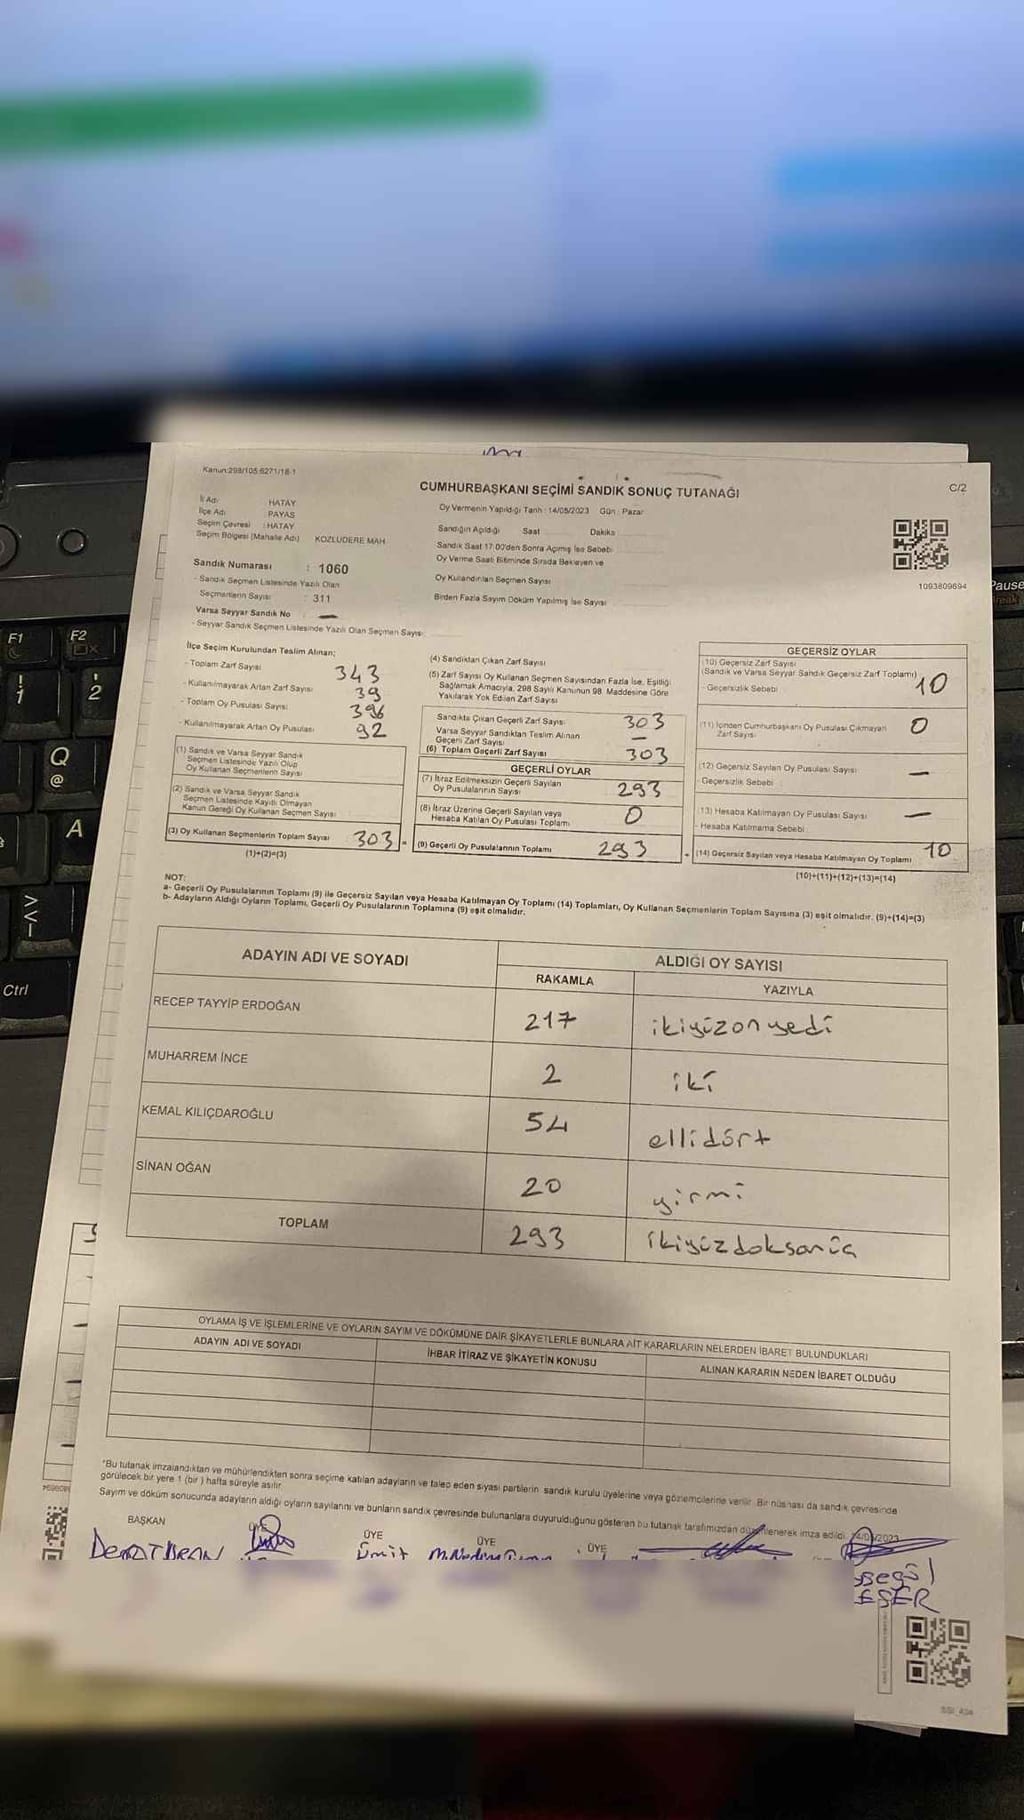 Kanun:298/105.6271/18-1
CUMHURBAŞKANI SEÇİMİ SANDIK SONUÇ TUTANAĞI
C/2
İl Adı : HATAY
İlçe Adı : PAYAS
Seçim Çevresi : HATAY
Seçim Bölgesi (Mahalle Adı) KOZLUDERE MAH.
Sandık Numarası : 1060
- Sandık Seçmen Listesinde Yazılı Olan
Seçmenlerin Sayısı : 311
Varsa Seyyar Sandık No : —
- Seyyar Sandık Seçmen Listesinde Yazılı Olan Seçmen Sayısı:
Oy Vermenin Yapıldığı Tarih : 14/05/2023 Gün : Pazar
Sandığın Açıldığı Saat Dakika
Sandık Saat 17:00'den Sonra Açılmış İse Sebebi
Oy Verme Saati Bitiminde Sırada Bekleyen ve
Oy Kullandırılan Seçmen Sayısı
Birden Fazla Sayım Döküm Yapılmış İse Sayısı
1093809694
İlçe Seçim Kurulundan Teslim Alınan;
- Toplam Zarf Sayısı 343
- Kullanılmayarak Artan Zarf Sayısı 39
- Toplam Oy Pusulası Sayısı 396
- Kullanılmayarak Artan Oy Pusulası 92
(1) Sandık ve Varsa Seyyar Sandık
Seçmen Listesinde Yazılı Olup
Oy Kullanan Seçmenlerin Sayısı
(2) Sandık ve Varsa Seyyar Sandık
Seçmen Listesinde Kayıtlı Olmayan
Kanun Gereği Oy Kullanan Seçmen Sayısı
(3) Oy Kullanan Seçmenlerin Toplam Sayısı 303
(1)+(2)=(3)
(4) Sandıktan Çıkan Zarf Sayısı
(5) Zarf Sayısı Oy Kullanan Seçmen Sayısından Fazla İse, Eşitliği
Sağlamak Amacıyla, 298 Sayılı Kanunun 98. Maddesine Göre
Yakılarak Yok Edilen Zarf Sayısı
Sandıkta Çıkan Geçerli Zarf Sayısı 303
Varsa Seyyar Sandıktan Teslim Alınan
Geçerli Zarf Sayısı —
(6) Toplam Geçerli Zarf Sayısı 303
GEÇERLİ OYLAR
(7) İtiraz Edilmeksizin Geçerli Sayılan
Oy Pusulalarının Sayısı 293
(8) İtiraz Üzerine Geçerli Sayılan veya
Hesaba Katılan Oy Pusulası Toplamı 0
= (9) Geçerli Oy Pusulalarının Toplamı 293
GEÇERSİZ OYLAR
(10) Geçersiz Zarf Sayısı
(Sandık ve Varsa Seyyar Sandık Geçersiz Zarf Toplamı) 10
- Geçersizlik Sebebi
(11) İçinden Cumhurbaşkanı Oy Pusulası Çıkmayan
Zarf Sayısı 0
(12) Geçersiz Sayılan Oy Pusulası Sayısı —
- Geçersizlik Sebebi
(13) Hesaba Katılmayan Oy Pusulası Sayısı —
- Hesaba Katılmama Sebebi
(14) Geçersiz Sayılan veya Hesaba Katılmayan Oy Toplamı 10
(10)+(11)+(12)+(13)=(14)
NOT:
a- Geçerli Oy Pusulalarının Toplamı (9) ile Geçersiz Sayılan veya Hesaba Katılmayan Oy Toplamı (14) Toplamları, Oy Kullanan Seçmenlerin Toplam Sayısına (3) eşit olmalıdır. (9)+(14)=(3)
b- Adayların Aldığı Oyların Toplamı, Geçerli Oy Pusulalarının Toplamına (9) eşit olmalıdır.
ADAYIN ADI VE SOYADI ALDIĞI OY SAYISI
RAKAMLA YAZIYLA
RECEP TAYYİP ERDOĞAN 217 ikiyüzonyedi
MUHARREM İNCE 2 iki
KEMAL KILIÇDAROĞLU 54 ellidört
SİNAN OĞAN 20 yirmi
TOPLAM 293 ikiyüzdoksanüç
OYLAMA İŞ VE İŞLEMLERİNE VE OYLARIN SAYIM VE DÖKÜMÜNE DAİR ŞİKAYETLERLE BUNLARA AİT KARARLARIN NELERDEN İBARET BULUNDUKLARI
ADAYIN ADI VE SOYADI İHBAR İTİRAZ VE ŞİKAYETİN KONUSU ALINAN KARARIN NEDEN İBARET OLDUĞU
*Bu tutanak imzalandıktan ve mühürlendikten sonra seçime katılan adayların ve talep eden siyasi partilerin sandık kurulu üyelerine veya gözlemcilerine verilir. Bir nüshası da sandık çevresinde
görülecek bir yere 1 (bir) hafta süreyle asılır.
Sayım ve döküm sonucunda adayların aldığı oyların sayılarını ve bunların sandık çevresinde bulunanlara duyurulduğunu gösteren bu tutanak tarafımızdan düzenlenerek imza edildi. 14/05/2023
BAŞKAN ÜYE ÜYE ÜYE ÜYE
Ümit
ESER
F1
F2
!
1
2
Q
@
A
>
<
Ctrl
Pause
Break